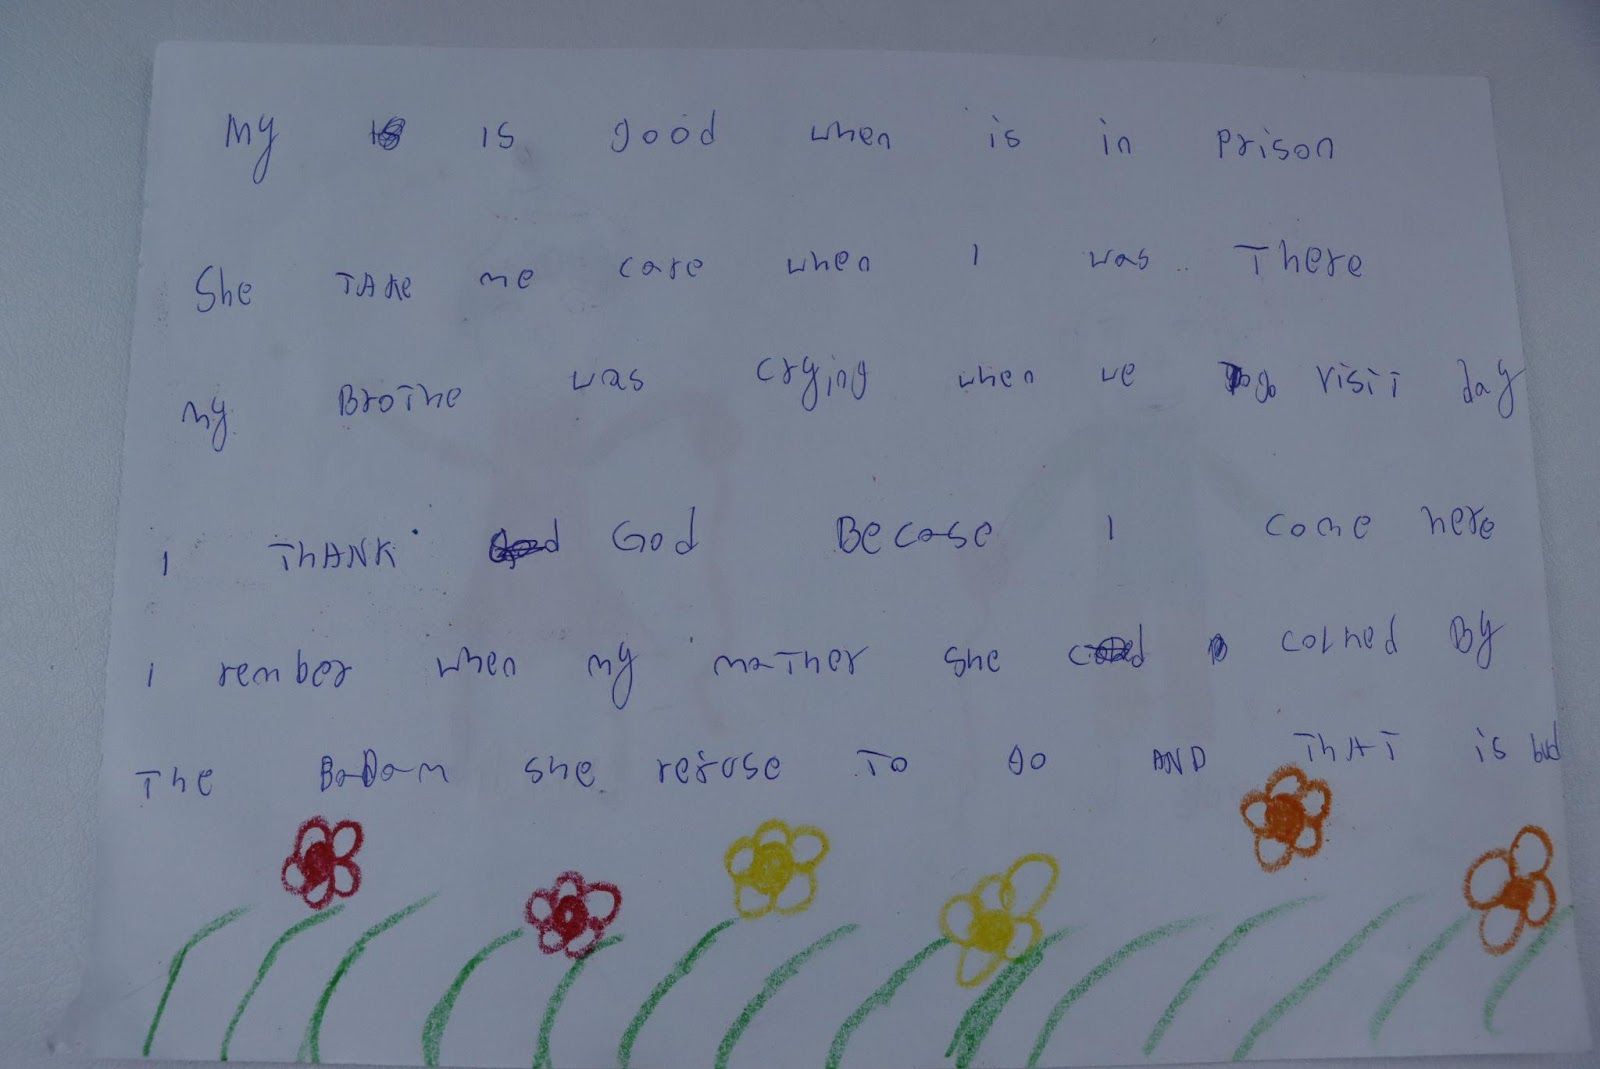 My is good when is in prison
She TAKe me care when I was There
my BroThe was crying when we go visiT day
I ThANK God Becase I come here
I rember when my maTher she colned By
The BaDam she refuse To Go AND ThAT is bad